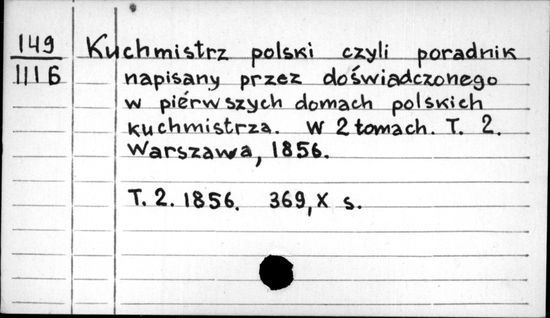 149
1116
Kuchmistrz polski czyli poradnik
napisany przez doświadczonego
w piérwszych domach polskich
kuchmistrza. W 2 tomach. T. 2.
Warszawa, 1856.
T. 2. 1856. 369, X s.